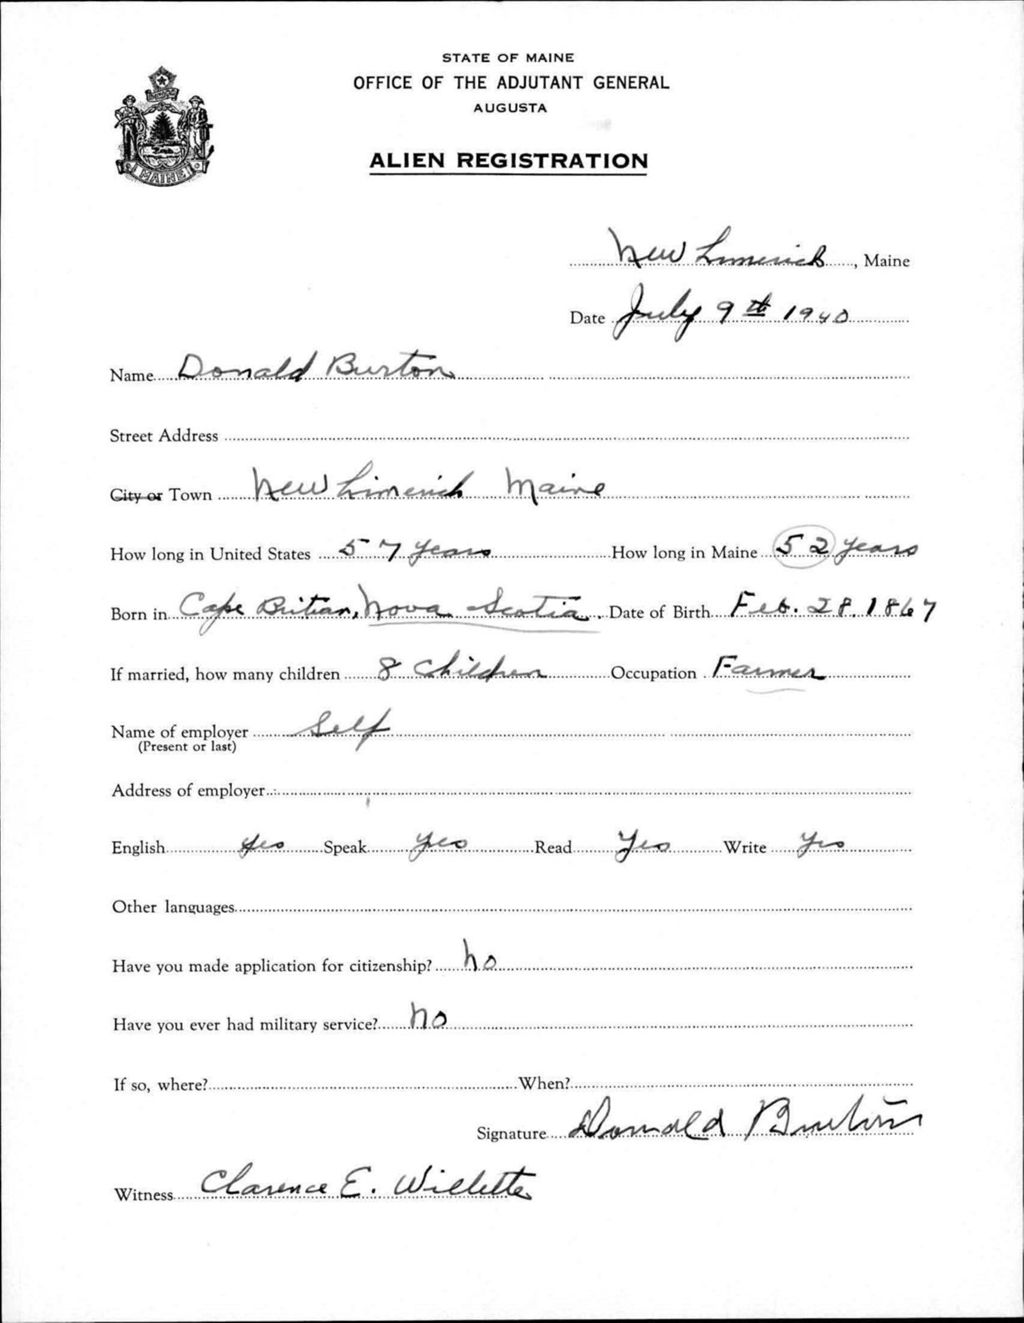 STATE OF MAINE
OFFICE OF THE ADJUTANT GENERAL
AUGUSTA
ALIEN REGISTRATION
MAINE
New Limerick, Maine
Date July 9th 1940
Name Donald Burton
Street Address
City or Town New Limerick Maine
How long in United States 57 years How long in Maine 52 years
Born in Cape Britian, Nova Scotia. Date of Birth Feb. 28, 1867
If married, how many children 8 Children Occupation Farmer
Name of employer Self
(Present or last)
Address of employer
English yes Speak yes Read Yes Write Yes
Other languages
Have you made application for citizenship? No
Have you ever had military service? No
If so, where? When?
Signature Donald Burton
Witness Clarence E. Willette